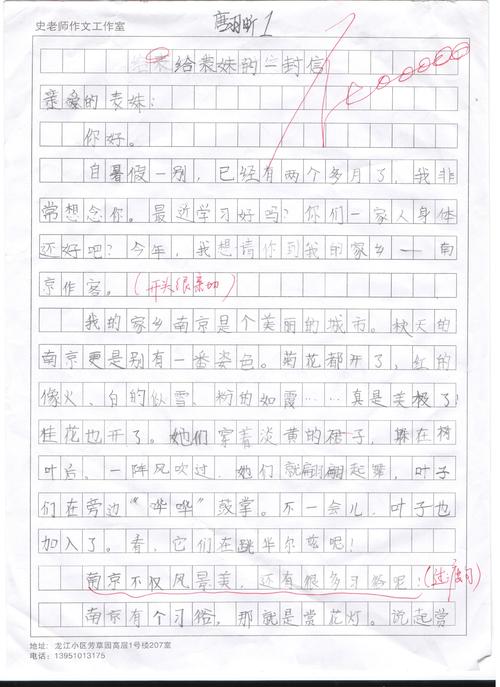 史老师作文工作室
唐羽昕 1
给表妹的一封信
亲爱的表妹：
你好。
自暑假一别，已经有两个多月了，我非
常想念你。最近学习好吗？你们一家人身体
还好吧？今年，我想请你到我的家乡——南
京作客。（开头很亲切）
我的家乡南京是个美丽的城市。秋天的
南京更是别有一番姿色。菊花都开了，红的
像火、白的似雪、粉的如霞……真是美极了！
桂花也开了。她们穿着淡黄的裙子，躲在树
叶后。一阵风吹过，她们就翩翩起舞，叶子
们在旁边“哗哗”鼓掌。不一会儿，叶子也
加入了。看，它们在跳华尔兹呢！
南京不仅风景美，还有很多习俗呢！（过度句）
南京有个习俗，那就是赏花灯。说起赏
地址：龙江小区芳草园高层1号楼207室
电话：13951013175